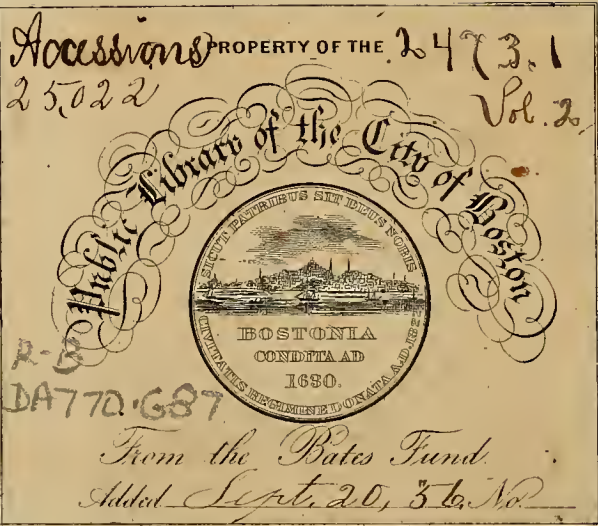 Accessions PROPERTY OF THE 2473.1
25,022 Vol. 2.
Public Library of the City of Boston
SICUT PATRIBUS SIT DEUS NOBIS
BOSTONIA
CONDITA AD
1630.
CIVITATIS REGIMINE DONATA A.D. 1822
R-B
DA770.G87
From the Bates Fund.
Added Sept. 20, 56. No